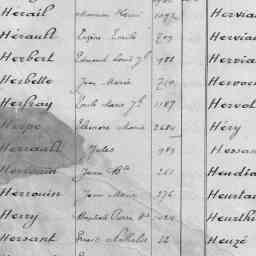 Hérail Maurice Henri 1092 Hervia
Hérault Eugène Emile 209 Hervia
Herbert Edmond Louis Jh 988 Hervia
Herbette Jean Marie 750 Hervo
Herfray Louis Marie Jh 1187 Hervo
Herpe Eléonore Marie 2684 Héry
Herrault Jules 989 Hessa
Jean Bte 261 Heudi
Herrouin Jean Marie 276 Heurta
Herry Baptiste Pierre Heurth
Hersant 22 Heuzé